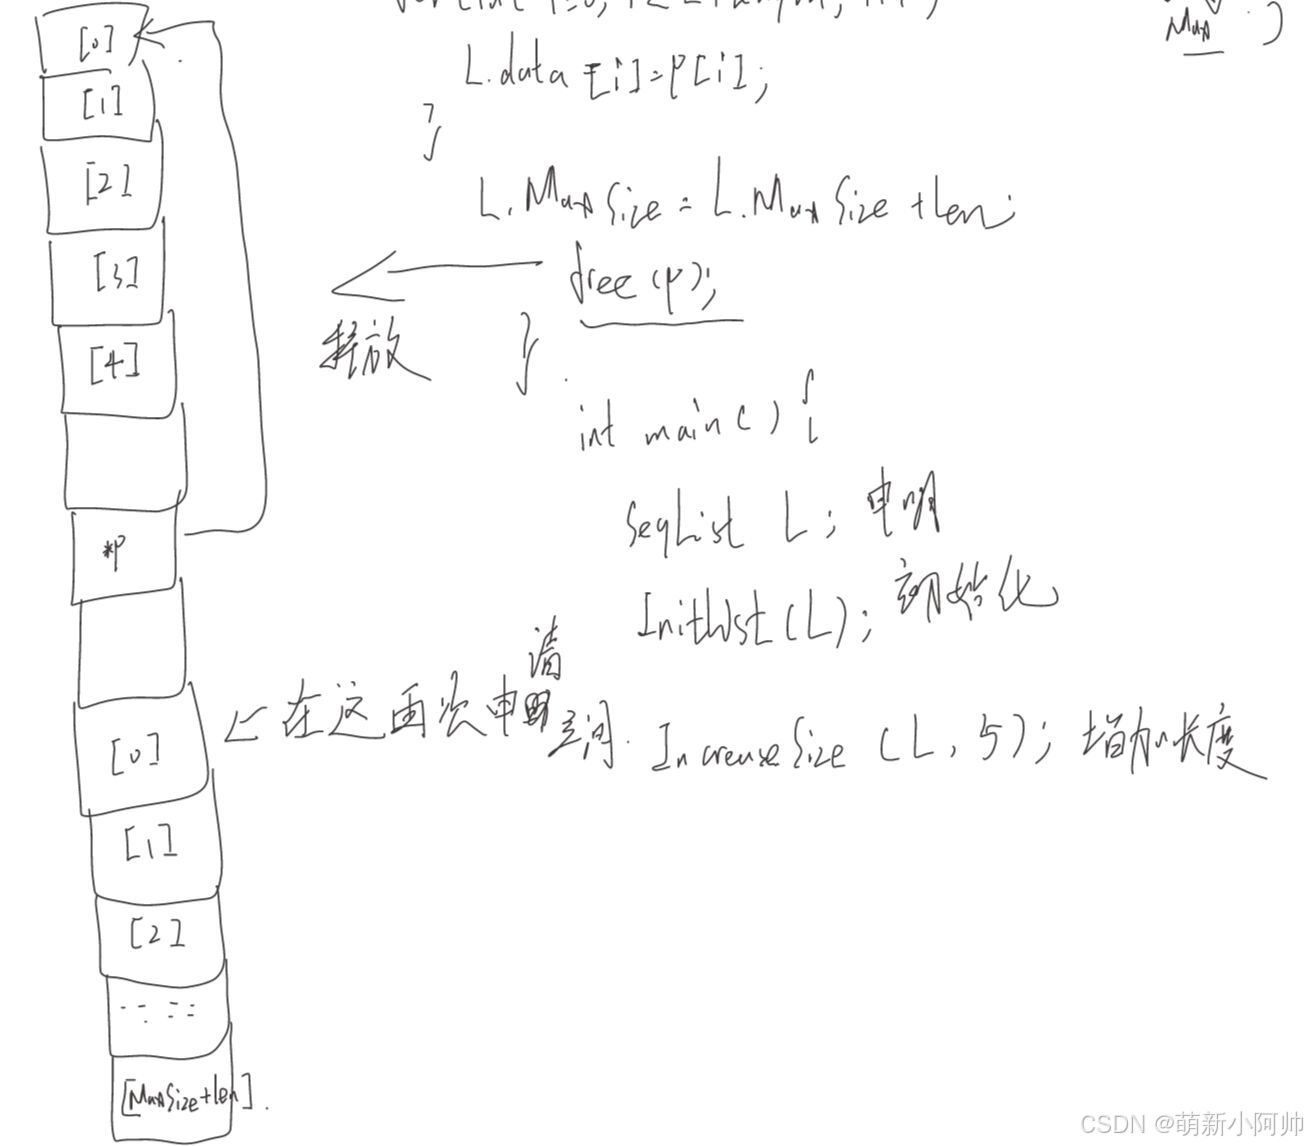 Max )
[0]
L.data[i]=p[i];
[1]
}
[2]
L.MaxSize = L.MaxSize + len;
[3]
free(p);
释放
}
[4]
int main() {
SeqList L; 申明
*p
InitList(L); 初始化
在这再次申请空间.
IncreaseSize (L, 5); 增加长度
[0]
[1]
[2]
[MaxSize+len].
CSDN @萌新小阿帅